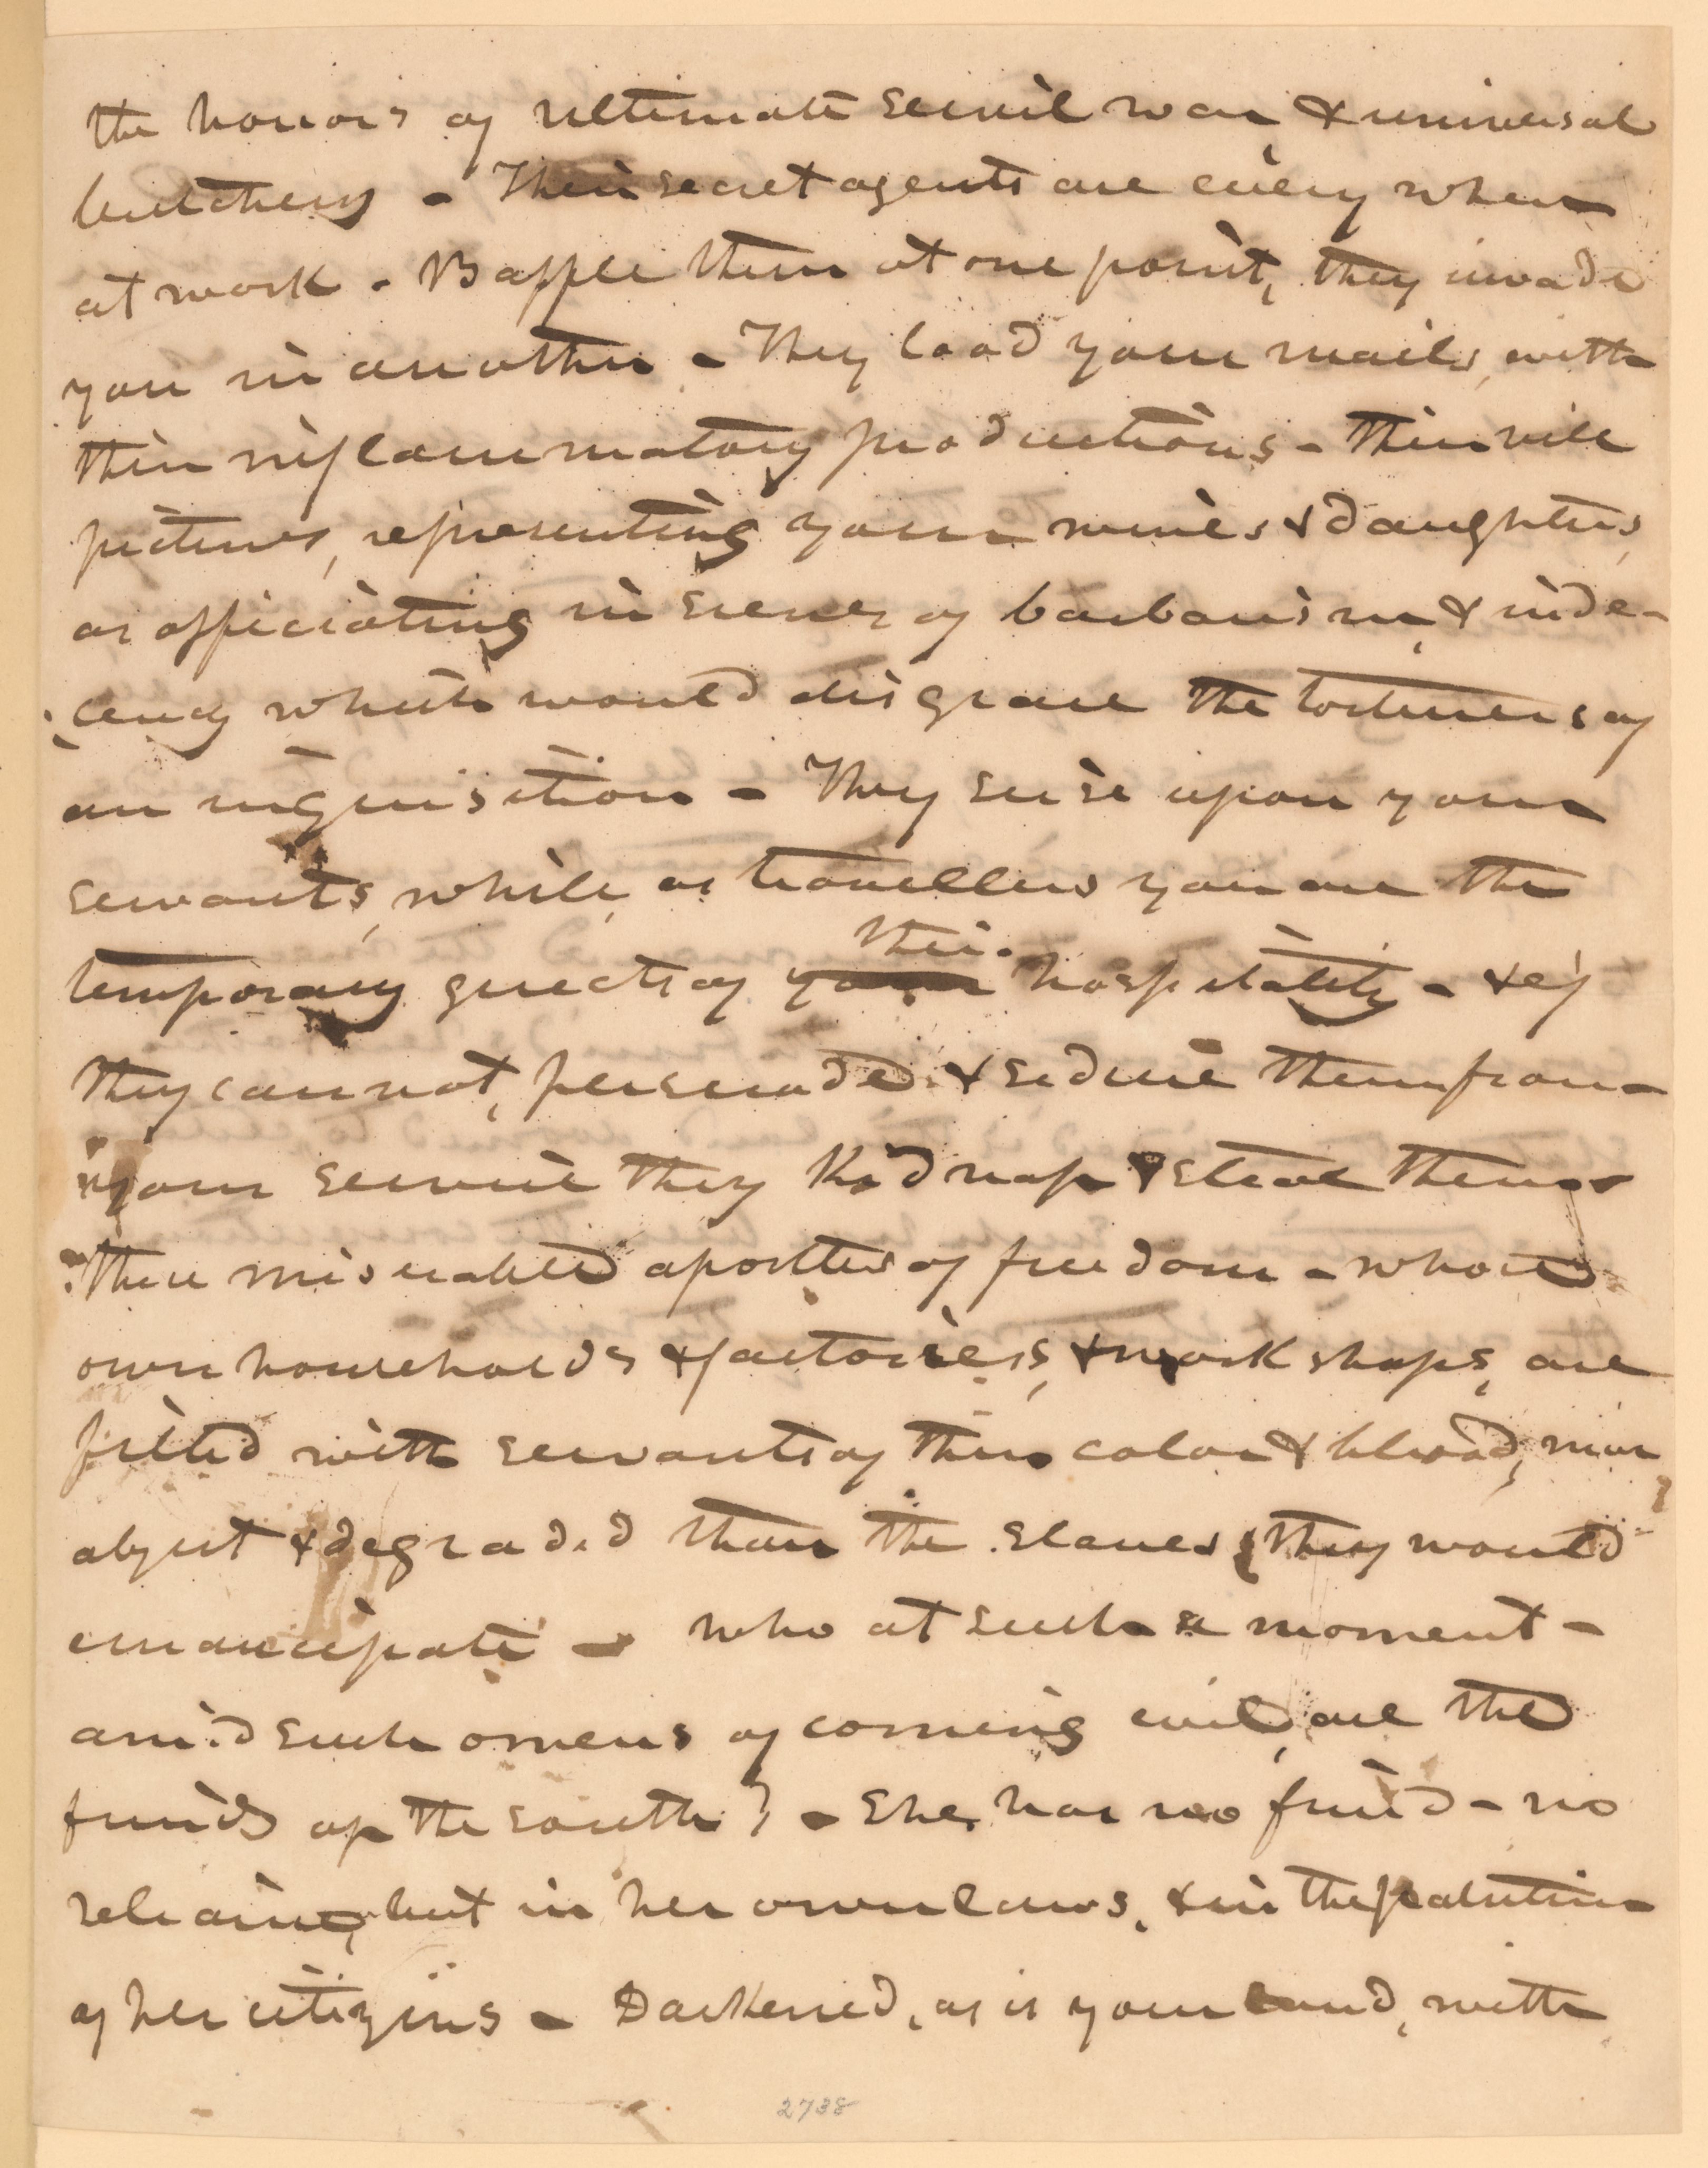 the horrors of ultimate servil war, & universal
butchery - Their secret agents are every where
at work - Baffle them at one point, they invade
you in another - They load your mails, with
their inflammatory productions - Their vile
pictures, representing your wives & daughters,
as officiating in scenes of barbarism, & inde-
cency which would disgrace the tortures of
an inquisition - They seise upon your
servants, while, as travellers you are the
temporary guests of their hospitality - & if
they cannot, persuade & seduce them from
your service they kidnap & steal them -
These miserable apostles of freedom - whose
own households & factories, & work shops, are
filled with servants of their color & blood, more
abject & degraded than the slaves they would
emancipate - who at such a moment -
amid such omens of coming evil, are the
friends of the south? - She has no friend - no
reliance, but in her own laws, & in the patriotism
of her citizens - Darkened, as is your land, with
2738